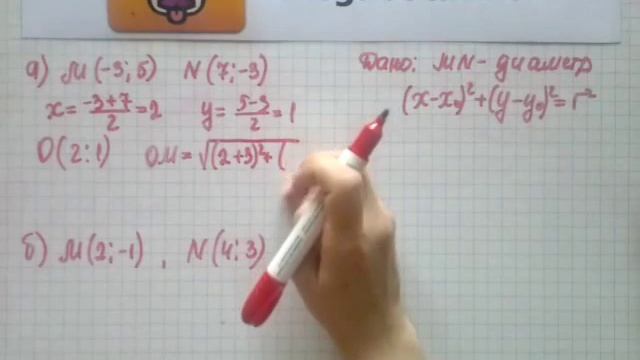 а) M(-3; 5) N(7; -3) Дано: MN - диаметр
x = (-3+7)/2 = 2 y = (5-3)/2 = 1 (x-x₀)²+(y-y₀)²=r²
O(2;1) OM = √(2+3)²+(
б) M(2; -1), N(4; 3)